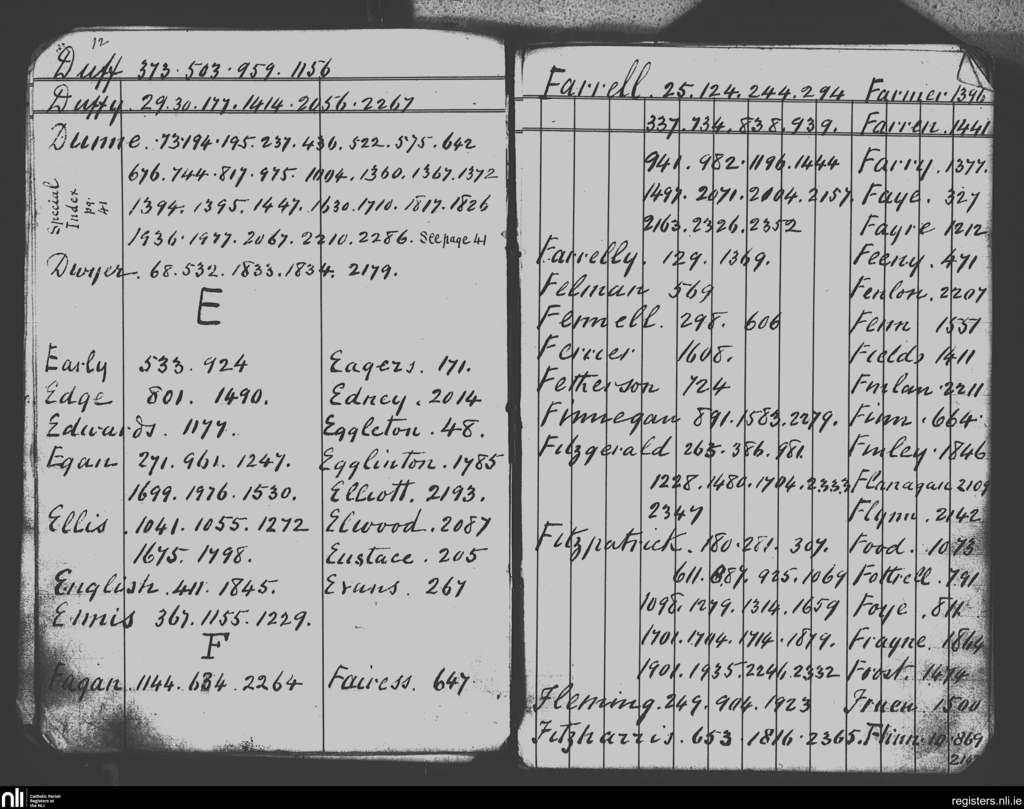 12
Duff 373. 503. 959. 1156
Duffy. 29. 30. 177. 1414. 2056. 2267
Dunne. 73. 194. 195. 237. 436. 522. 575. 642
676. 744. 817. 975. 1104. 1360. 1367. 1372
Special Index pg. 41
1394. 1395. 1447. 1630. 1710. 1817. 1826
1936. 1977. 2067. 2210. 2286. See page 41
Dwyer. 68. 532. 1833. 1834. 2179.
E
Early 533. 924
Edge 801. 1490.
Edwards. 1177.
Egan 271. 961. 1247.
1699. 1976. 1530.
Ellis. 1041. 1055. 1272
1675. 1798.
English. 411. 1845.
Ennis 367. 1155. 1229.
Eagers. 171.
Edney. 2014
Eggleton. 48.
Egglinton. 1785
Elliott. 2193.
Elwood. 2087
Eustace. 205
Evans. 267
F
Fagan. 1144. 634. 2264
Fairess. 647
Farrell. 25. 124. 244. 294
337. 734. 838. 939.
941. 982. 1196. 1444
1497. 2071. 2004. 2157.
2163. 2326. 2352
Farrelly. 129. 1369.
Felman 569
Fennell. 298. 606
Ferrier 1608.
Fetherson 724
Finnegan 891. 1583. 2279.
Fitzgerald 265. 386. 981.
1228. 1480. 1704. 2333
2347
Fitzpatrick. 180. 281. 307.
611. 887. 925. 1069
1098. 1279. 1314. 1659
1701. 1704. 1714. 1879.
1901. 1935. 2246. 2332
Fleming. 249. 904. 1923
Fitzharris. 653. 1816. 2365.
Farmer. 1396
Farren. 1441
Farry. 1377.
Faye. 327
Fayre 1212
Feeny. 471
Fenlon. 2207
Fenn 1551
Fields 1411
Finlan. 2211
Finn. 664.
Finley. 1846
Flanagan 2109
Flynn. 2142
Food. 1073
Fottrell. 791
Foye. 811
Frayne. 1864
Frost. 1474
Fruen 1500
Flinn. 10. 869
nli Catholic Parish Registers at the NLI
registers.nli.ie